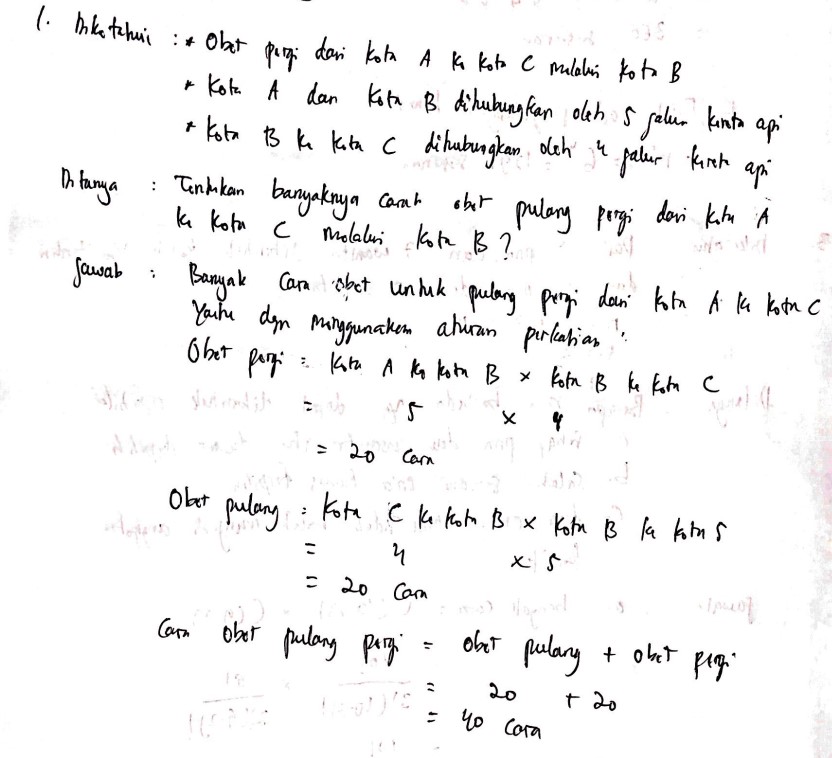 1. Diketahui : * Obet pergi dari kota A ke kota C melalui kota B
* Kota A dan kota B dihubungkan oleh 5 jalur kereta api
* Kota B ke kota C dihubungkan oleh 4 jalur kereta api
Ditanya : Tentukan banyaknya carah obet pulang pergi dari kota A
ke kota C melalui kota B ?
Jawab : Banyak cara obet untuk pulang pergi dari kota A ke kota C
Yaitu dgn menggunakan aturan perkalian :
Obet pergi = kota A ke kota B × kota B ke kota C
= 5 × 4
= 20 cara
Obet pulang = kota C ke kota B × kota B ke kota 5
= 4 × 5
= 20 cara
Cara obet pulang pergi = obet pulang + obet pergi
= 20 + 20
= 40 cara